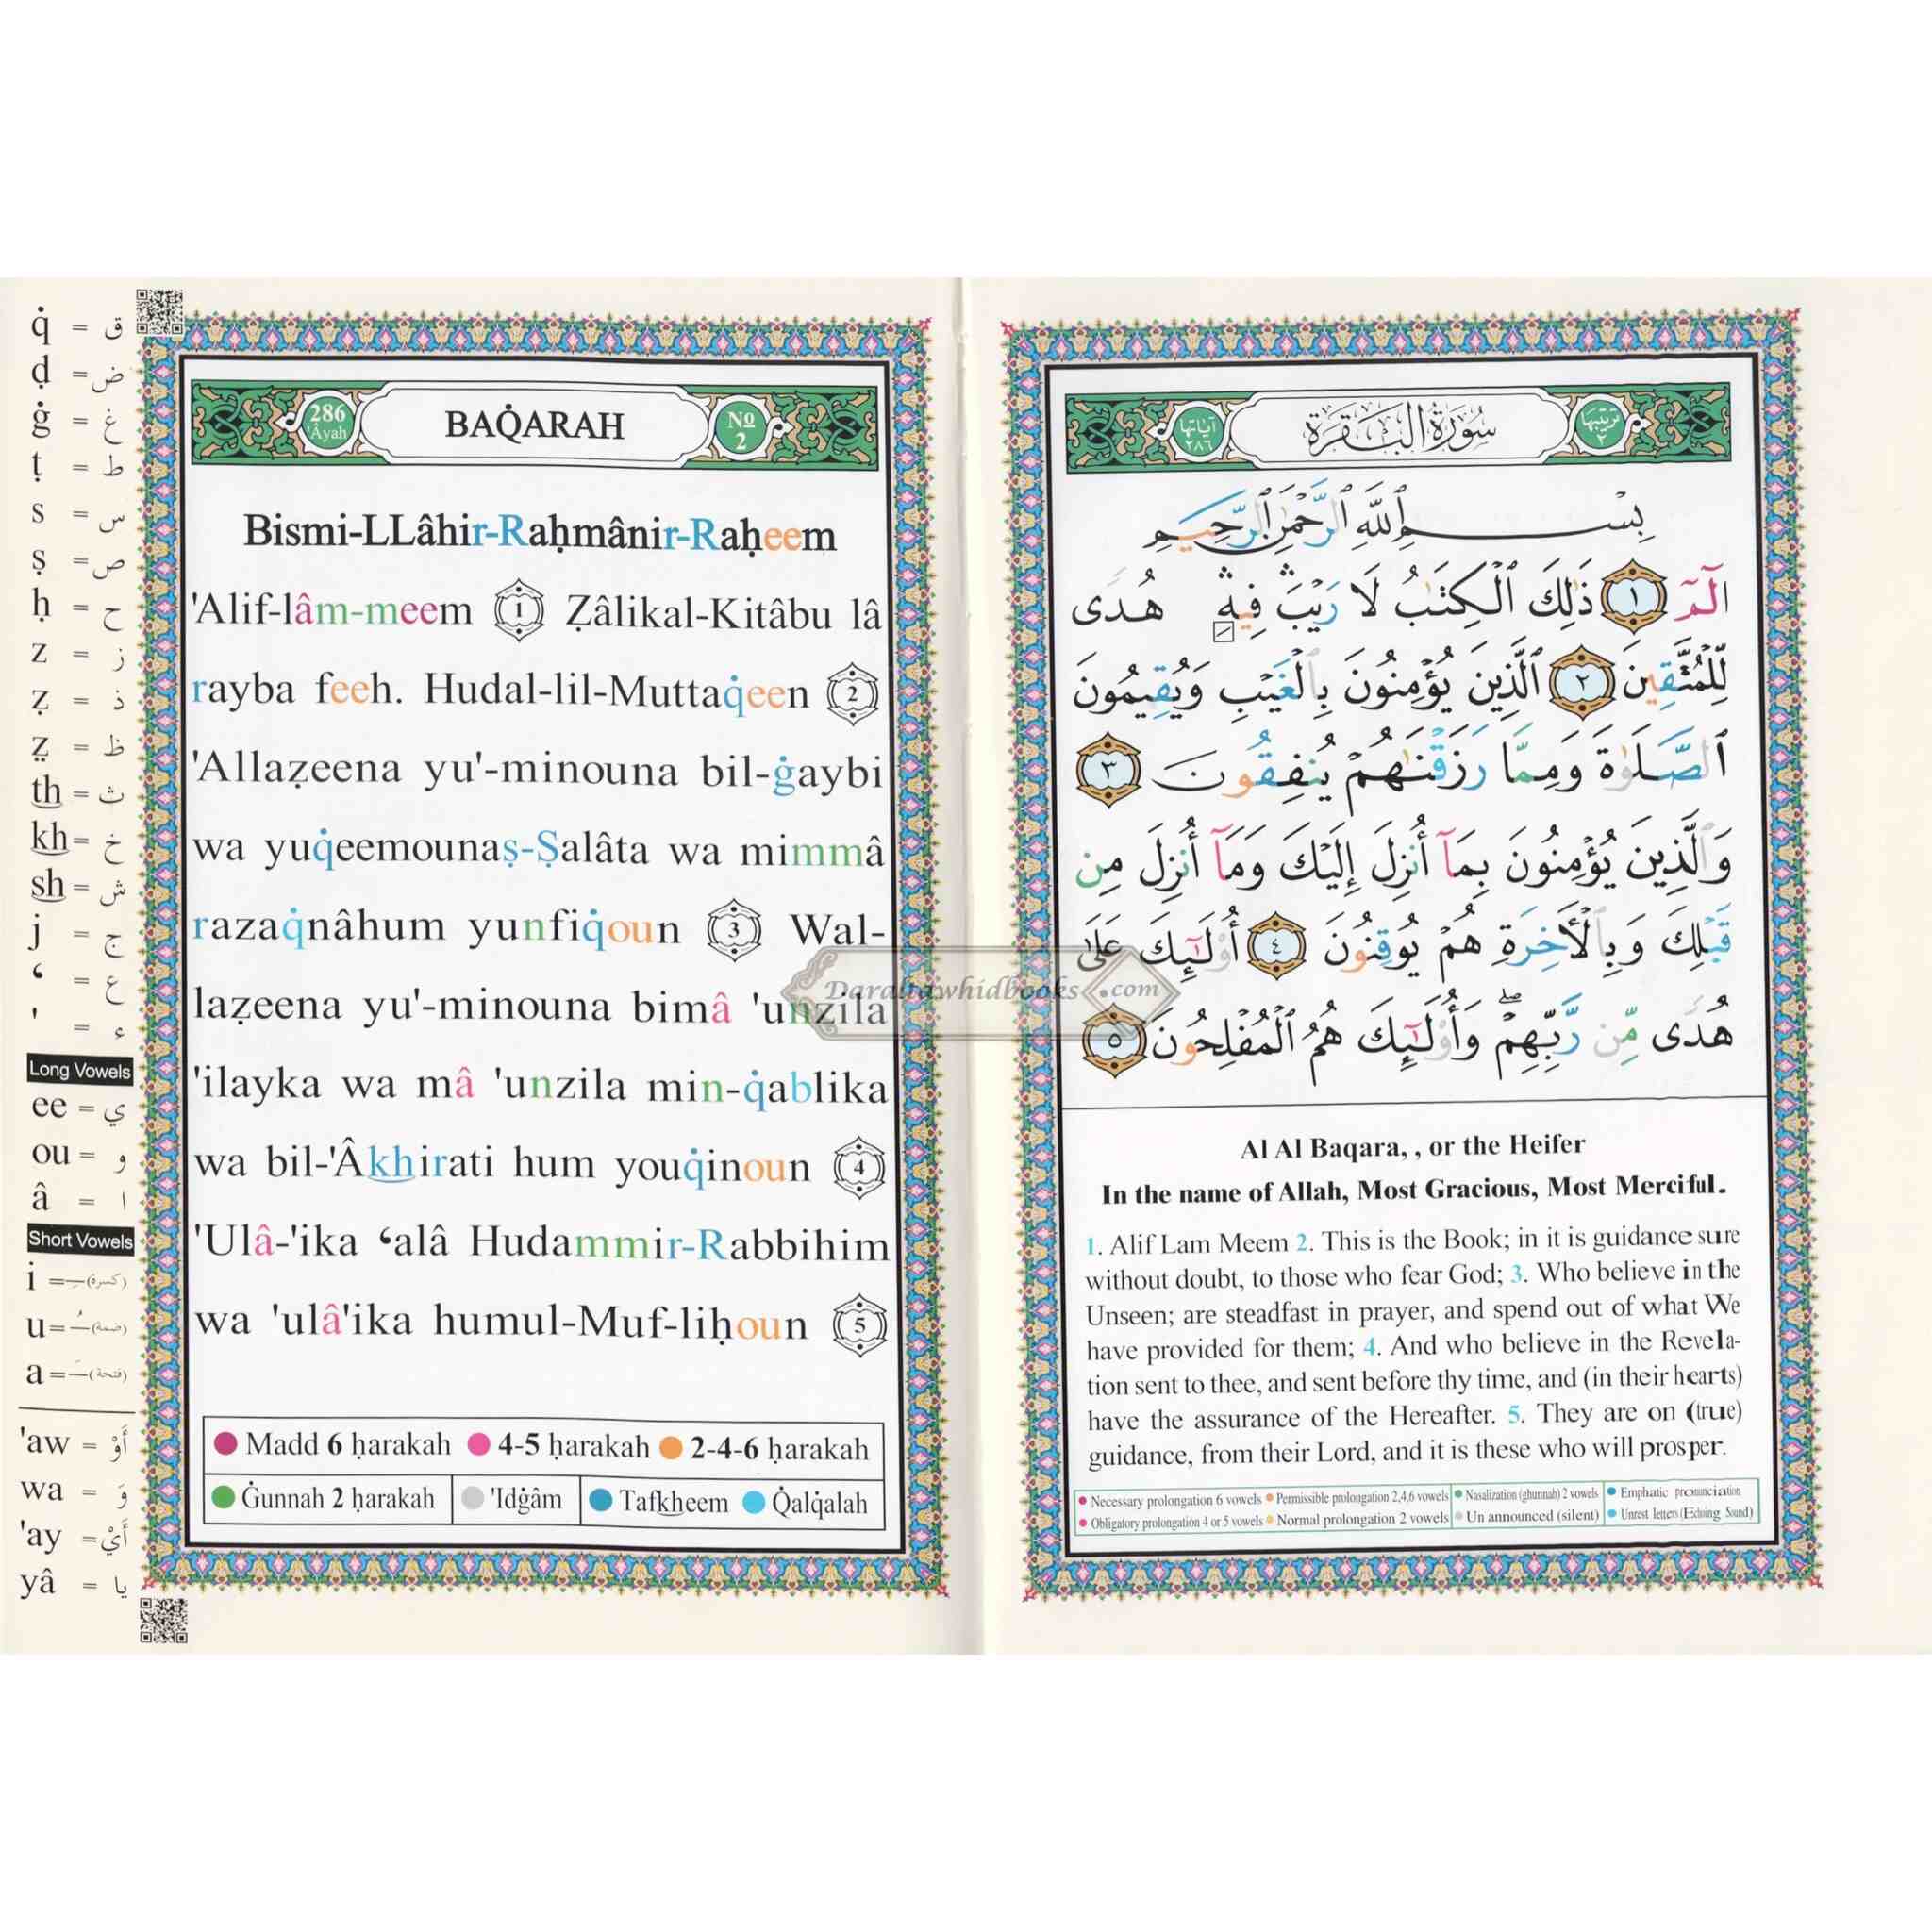 q̇ = ق
ḍ = ض
ġ = غ
ṭ = ط
s = س
ṣ = ص
ḥ = ح
z = ز
ẓ = ذ
ẓ = ظ
th = ث
kh = خ
sh = ش
j = ج
‘ = ع
' = ء
Long Vowels
ee = ي
ou = و
â = ا
Short Vowels
i = ـِ (كسرة)
u = ـُ (ضمة)
a = ـَ (فتحة)
'aw = أَوْ
wa = وَ
'ay = أَيْ
yâ = يا
286 'Âyah
BAQ̇ARAH
No 2
Bismi-LLâhir-Raḥmânir-Raḥeem
'Alif-lâm-meem 1 Ẓâlikal-Kitâbu lâ
rayba feeh. Hudal-lil-Muttaq̇een 2
'Allaẓeena yu'-minouna bil-ġaybi
wa yuq̇eemounaṣ-Ṣalâta wa mimmâ
razaq̇nâhum yunfiq̇oun 3 Wal-
laẓeena yu'-minouna bimâ 'unzila
'ilayka wa mâ 'unzila min-q̇ablika
wa bil-'Âkhirati hum youq̇inoun 4
'Ulâ-'ika ‘alâ Hudammir-Rabbihim
wa 'ulâ'ika humul-Muf-liḥoun 5
Madd 6 ḥarakah 4-5 ḥarakah 2-4-6 ḥarakah
Ġunnah 2 ḥarakah 'Idġâm Tafkheem Q̇alq̇alah
Daraltawhidbooks.com
ترتيبها ٢
سُورَةُ البَقَرَة
آياتها ٢٨٦
بِسْمِ ٱللَّهِ ٱلرَّحْمَٰنِ ٱلرَّحِيمِ
الٓمٓ ١ ذَٰلِكَ ٱلْكِتَٰبُ لَا رَيْبَ ۛ فِيهِ ۛ هُدًى
لِّلْمُتَّقِينَ ٢ ٱلَّذِينَ يُؤْمِنُونَ بِٱلْغَيْبِ وَيُقِيمُونَ
ٱلصَّلَوٰةَ وَمِمَّا رَزَقْنَٰهُمْ يُنفِقُونَ ٣
وَٱلَّذِينَ يُؤْمِنُونَ بِمَآ أُنزِلَ إِلَيْكَ وَمَآ أُنزِلَ مِن
قَبْلِكَ وَبِٱلْأَخِرَةِ هُمْ يُوقِنُونَ ٤ أُو۟لَٰٓئِكَ عَلَىٰ
هُدًى مِّن رَّبِّهِمْ ۖ وَأُو۟لَٰٓئِكَ هُمُ ٱلْمُفْلِحُونَ ٥
Al Al Baqara, , or the Heifer
In the name of Allah, Most Gracious, Most Merciful.
1. Alif Lam Meem 2. This is the Book; in it is guidance sure
without doubt, to those who fear God; 3. Who believe in the
Unseen; are steadfast in prayer, and spend out of what We
have provided for them; 4. And who believe in the Revela-
tion sent to thee, and sent before thy time, and (in their hearts)
have the assurance of the Hereafter. 5. They are on (true)
guidance, from their Lord, and it is these who will prosper.
Necessary prolongation 6 vowels Permissible prolongation 2,4,6 vowels Nasalization (ghunnah) 2 vowels Emphatic pronunciation
Obligatory prolongation 4 or 5 vowels Normal prolongation 2 vowels Un announced (silent) Unrest letters (Echoing Sound)